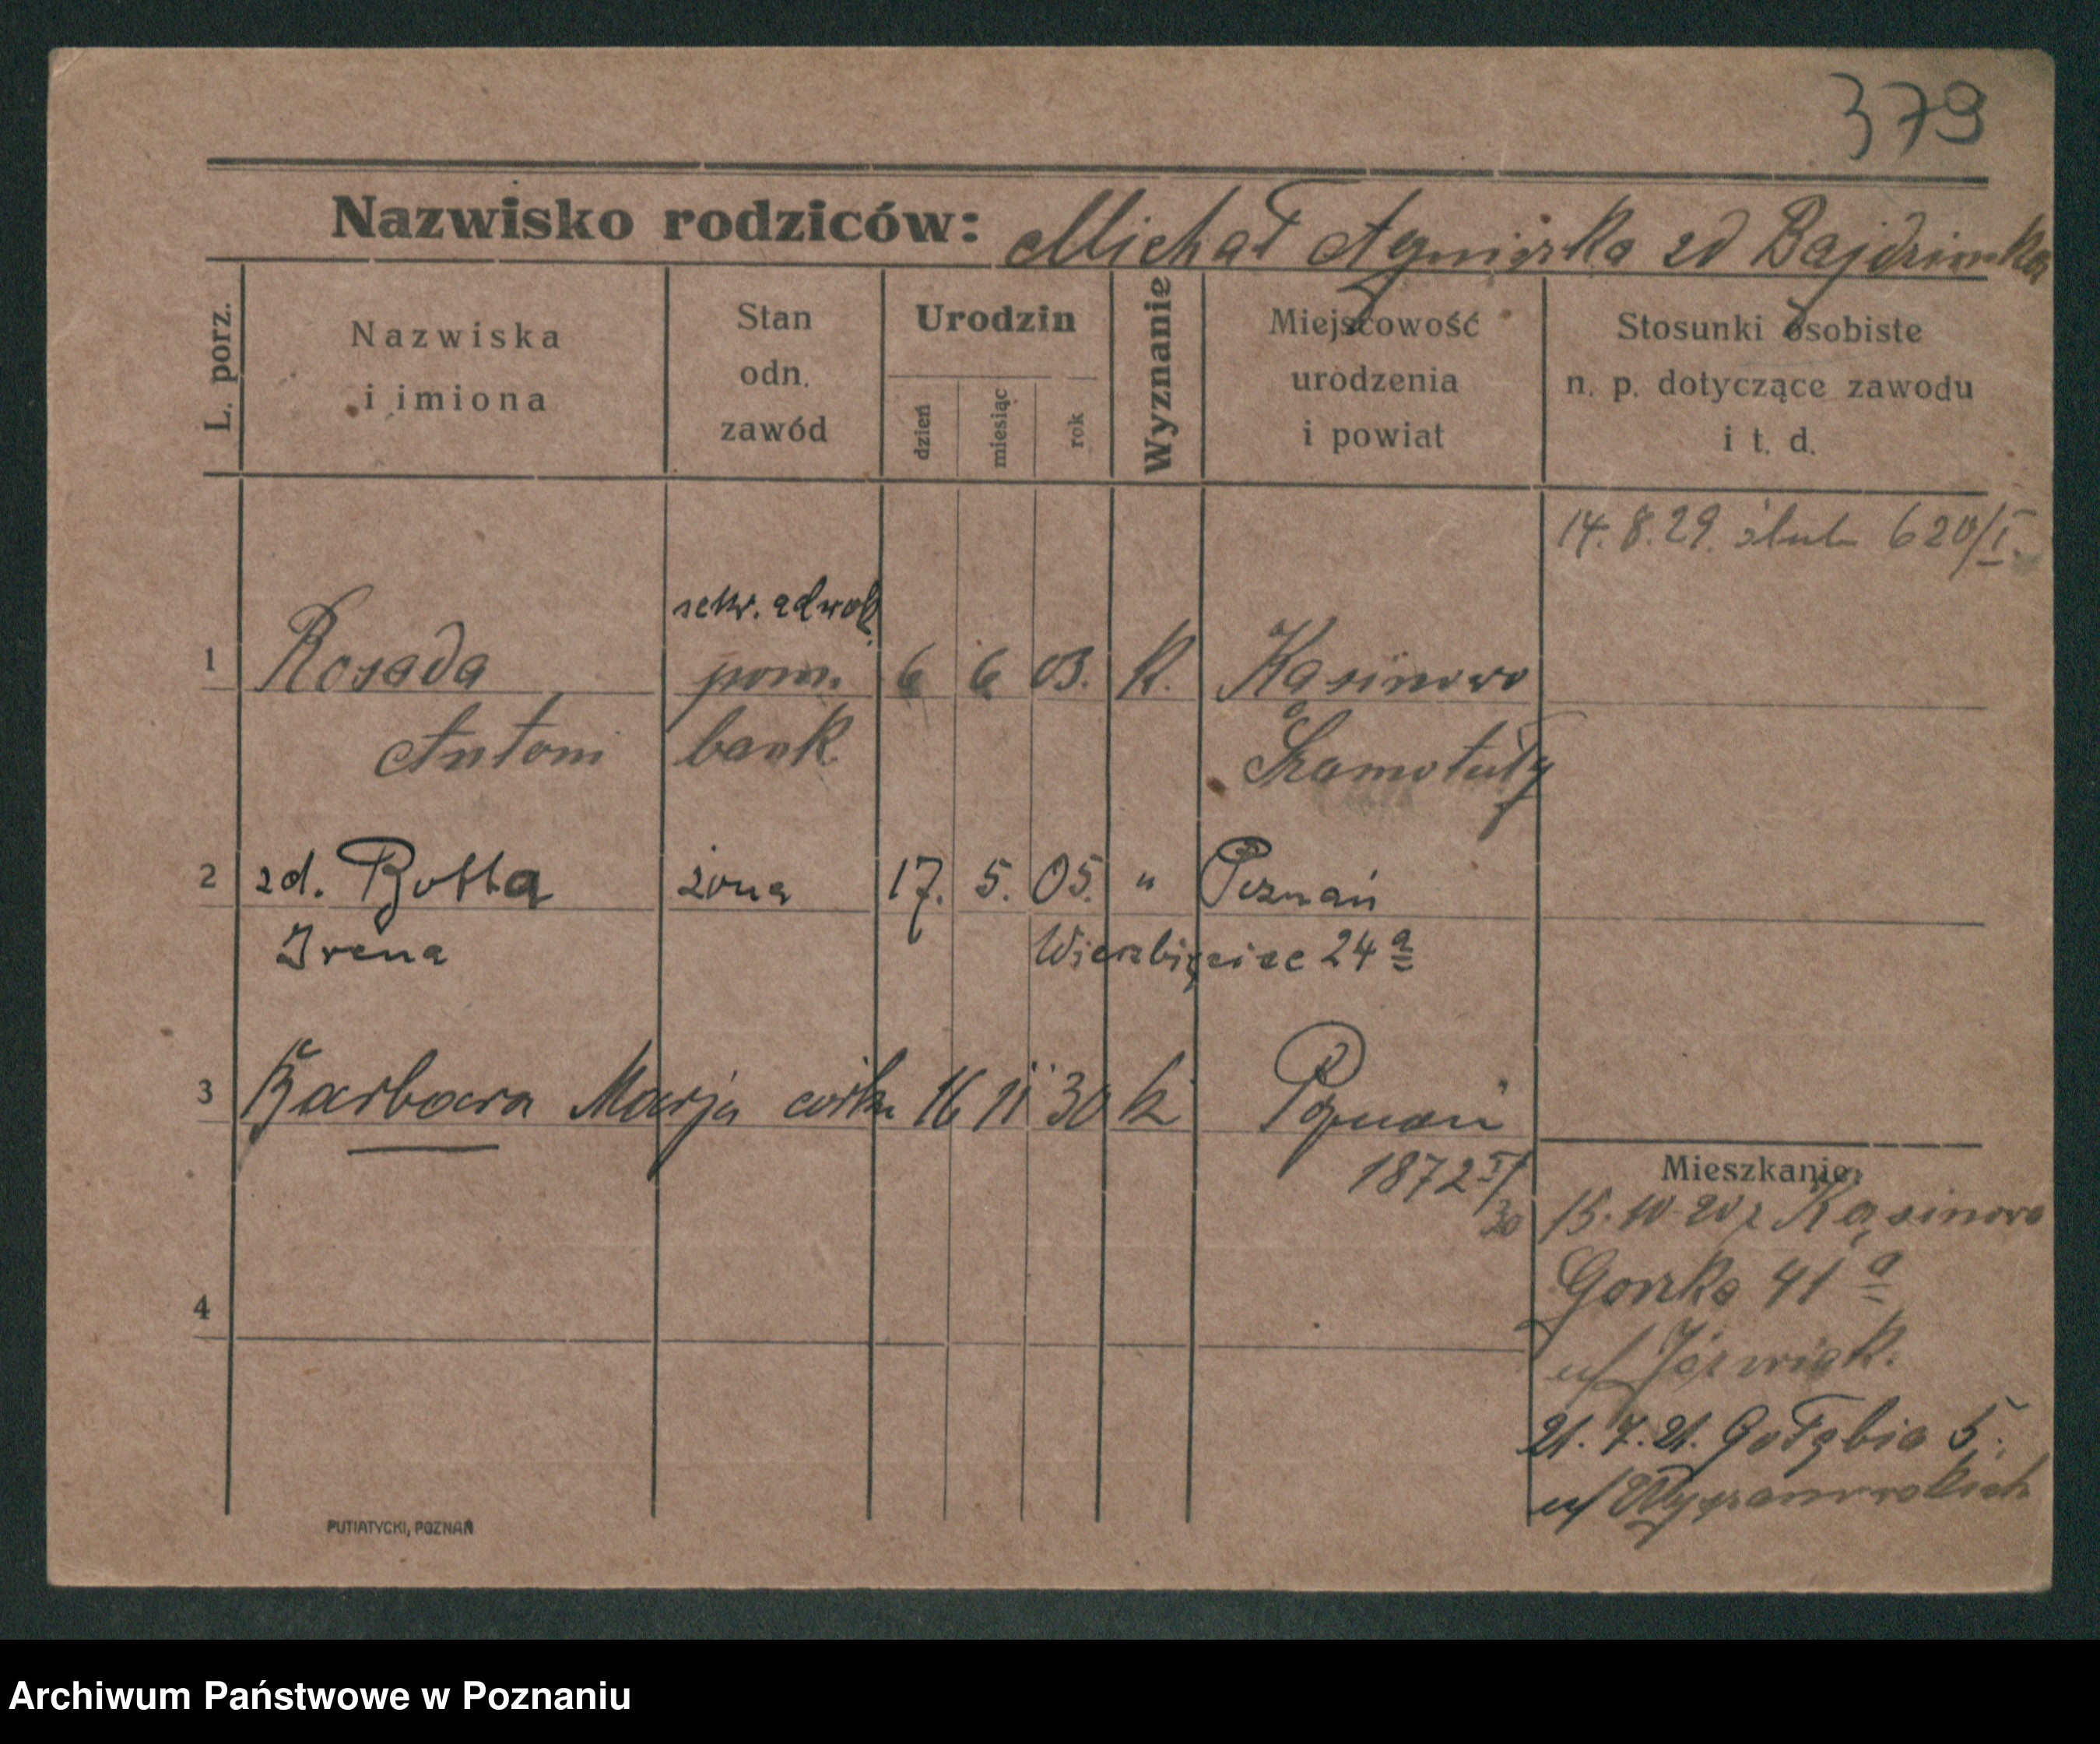 379
Nazwisko rodziców: Michał Agnieszka zd Bajdzinska
L. porz.
Nazwiska
i imiona
Stan
odn.
zawód
Urodzin
dzień
miesiąc
rok
Wyznanie
Miejscowość
urodzenia
i powiat
Stosunki osobiste
n. p. dotyczące zawodu
i t. d.
14. 8. 29. ślub 620/I.
sekr. adwok.
1 Rosada pom. 6 6 03. k. Kąsinowo
Antoni bank. Szamotuły
2 zd. Botta żona 17. 5. 05. " Poznań
Irena Wierzbięcice 24 a
3 Barbara Marja córka 16 11 30 k Poznań
1872 I/
30
4
Mieszkanie:
15. 10. 20 z Kąsinowo
Gorska 41 a
u/ Jóżwiak.
21. 7. 21. Gołębia 5.
u/
PUTIATYCKI, POZNAŃ
Archiwum Państwowe w Poznaniu